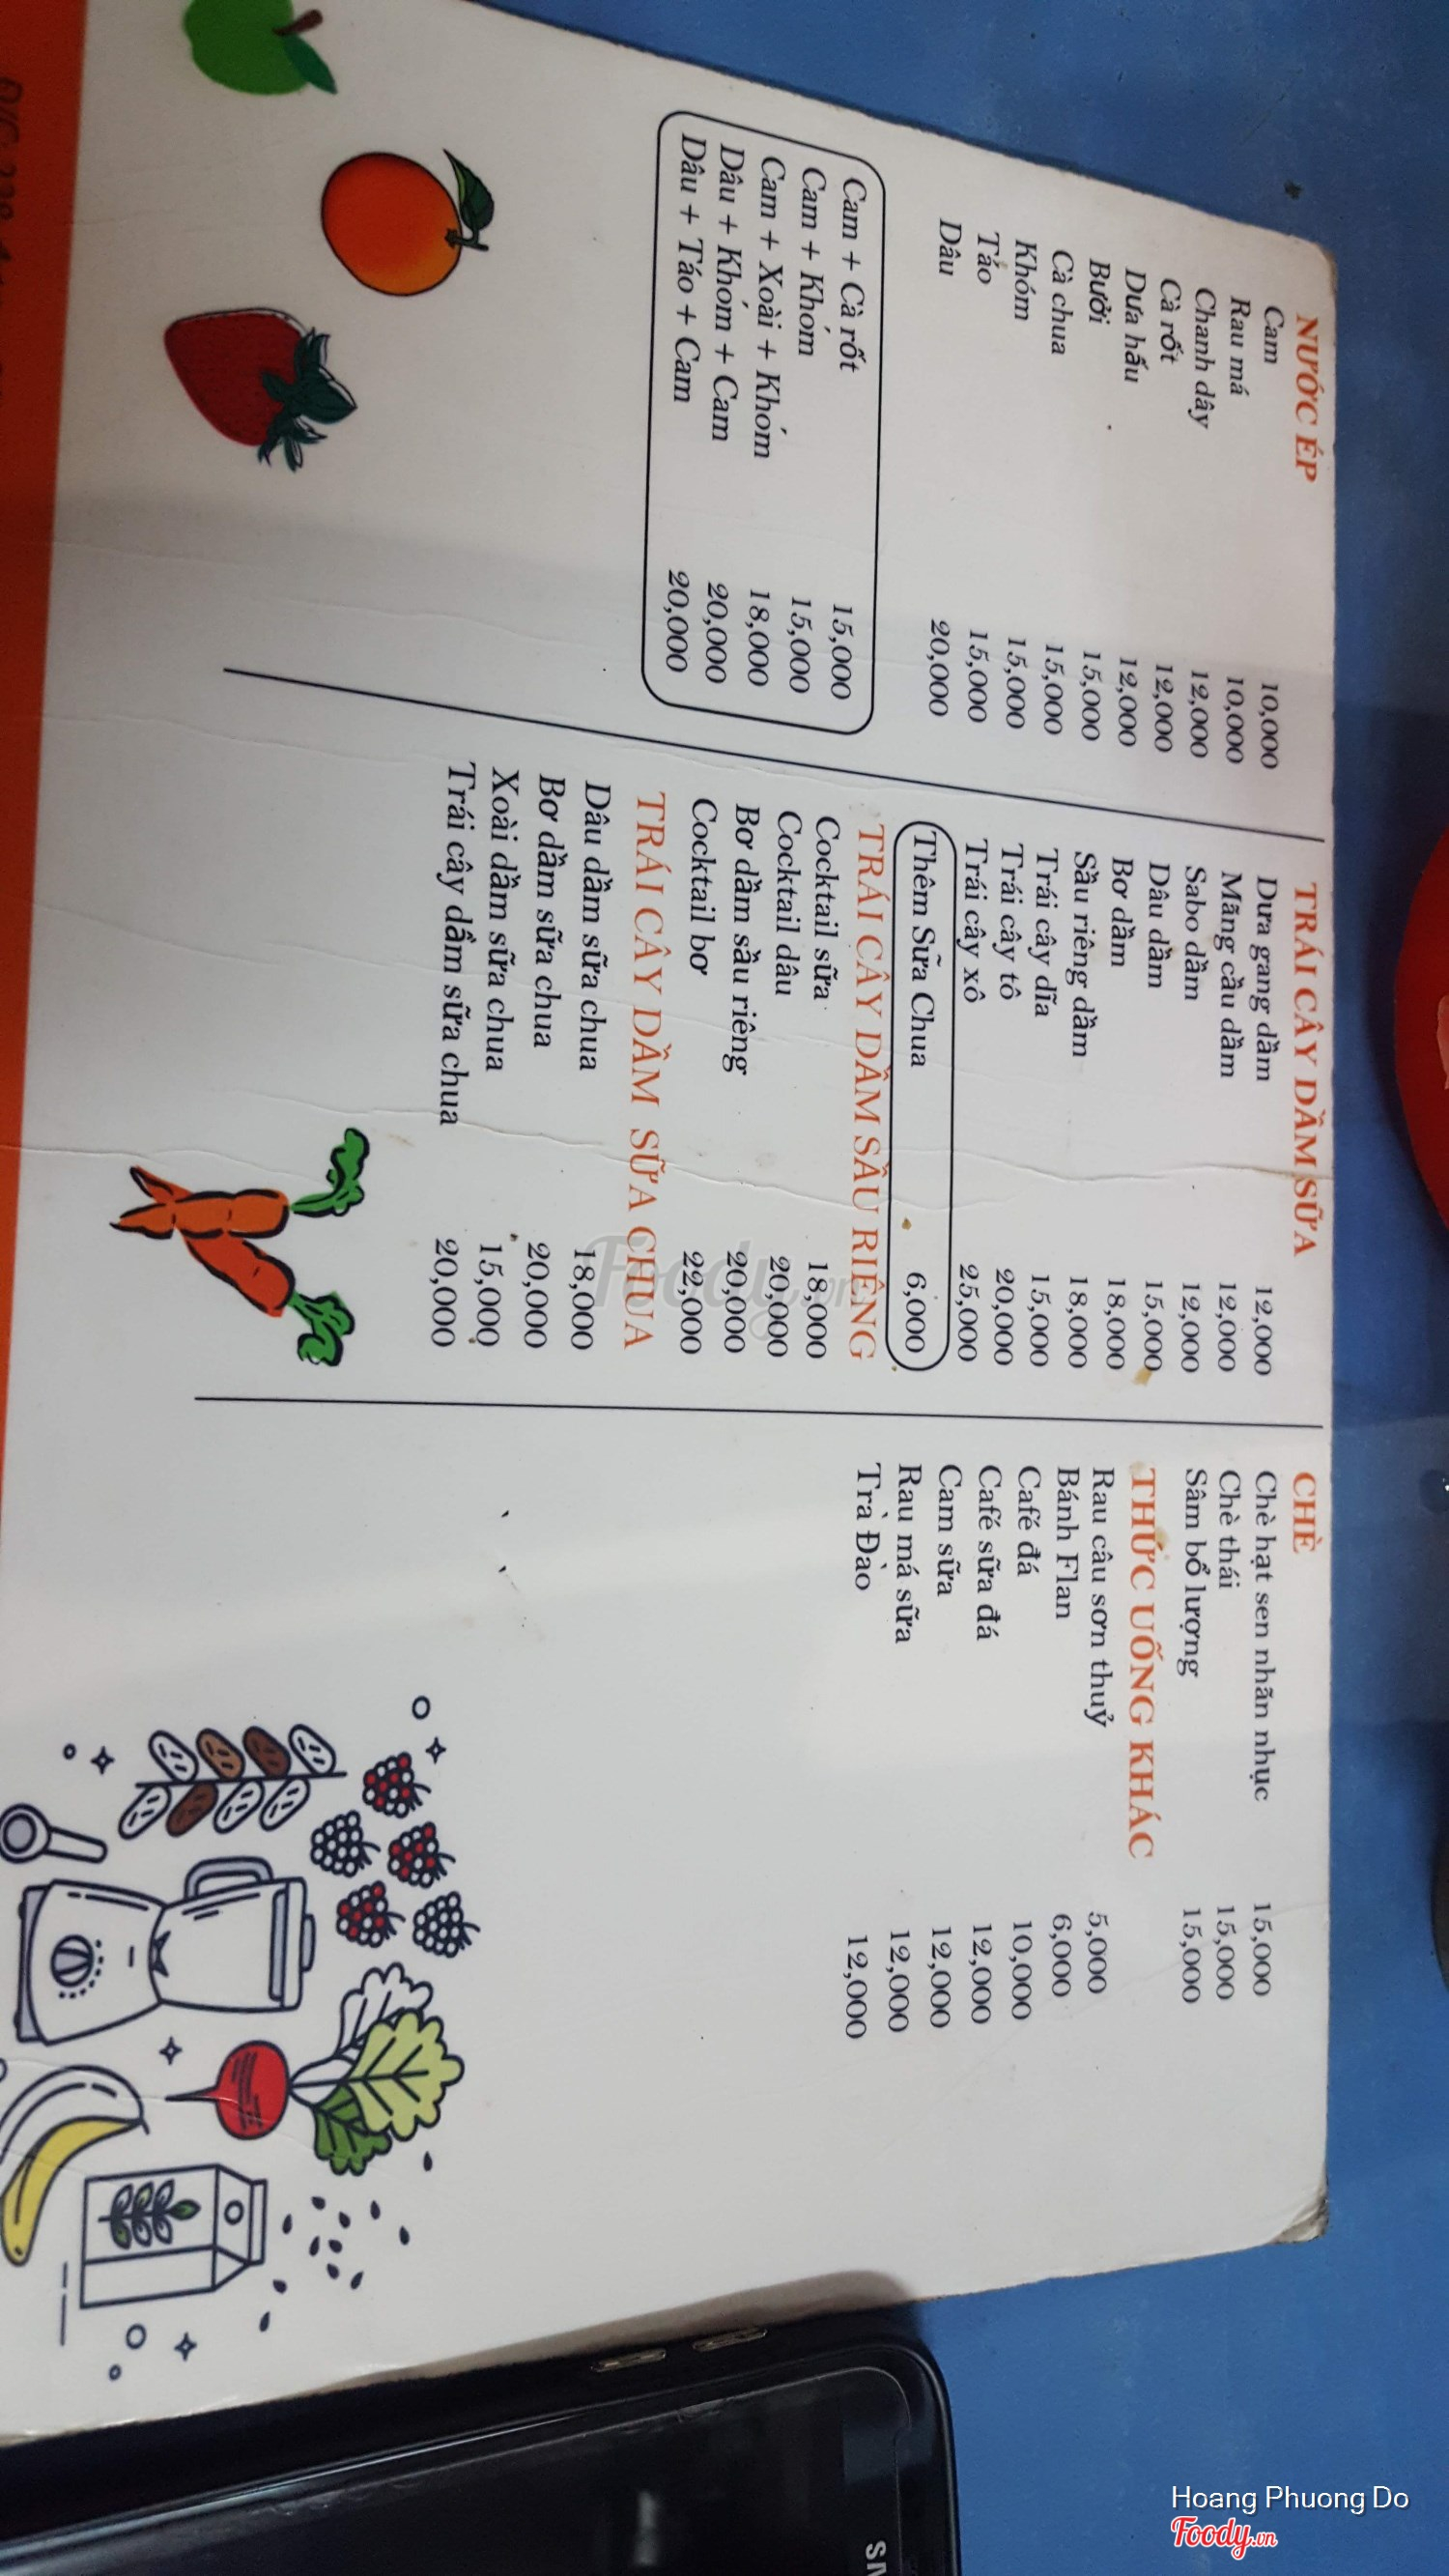 NƯỚC ÉP
Cam 10,000
Rau má 10,000
Chanh dây 12,000
Cà rốt 12,000
Dưa hấu 12,000
Bưởi 15,000
Cà chua 15,000
Khóm 15,000
Táo 15,000
Dâu 20,000
Cam + Cà rốt 15,000
Cam + Khóm 15,000
Cam + Xoài + Khóm 18,000
Dâu + Khóm + Cam 20,000
Dâu + Táo + Cam 20,000
TRÁI CÂY DẦM SỮA
Dưa gang dầm 12,000
Mãng cầu dầm 12,000
Sabo dầm 12,000
Dâu dầm 15,000
Bơ dầm 18,000
Sầu riêng dầm 18,000
Trái cây dĩa 15,000
Trái cây tô 20,000
Trái cây xô 25,000
Thêm Sữa Chua 6,000
TRÁI CÂY DẦM SẦU RIÊNG
Cocktail sữa 18,000
Cocktail dâu 20,000
Bơ dầm sầu riêng 20,000
Cocktail bơ 22,000
TRÁI CÂY DẦM SỮA CHUA
Dâu dầm sữa chua 18,000
Bơ dầm sữa chua 20,000
Xoài dầm sữa chua 15,000
Trái cây dầm sữa chua 20,000
CHÈ
Chè hạt sen nhãn nhục 15,000
Chè thái 15,000
Sâm bổ lượng 15,000
THỨC UỐNG KHÁC
Rau câu sơn thuỷ 5,000
Bánh Flan 6,000
Café đá 10,000
Café sữa đá 12,000
Cam sữa 12,000
Rau má sữa 12,000
Trà Đào 12,000
Foody.vn
Hoang Phuong Do
Foody.vn